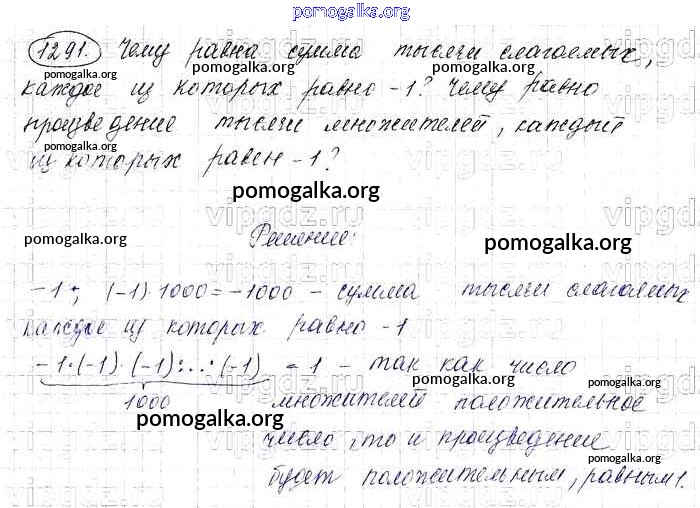 pomogalka.org
1291. Чему равна сумма тысячи слагаемых,
каждое из которых равно -1? Чему равно
произведение тысячи множителей, каждый
из которых равен -1?
pomogalka.org
Решение:
-1; (-1)·1000=-1000 - сумма тысячи слагаемых
каждое из которых равно -1
-1·(-1)·(-1)·...·(-1) = 1 - так как число
1000 множителей положительное
число, то и произведение
будет положительным, равным 1.
pomogalka.org
pomogalka.org
pomogalka.org
pomogalka.org
pomogalka.org
pomogalka.org